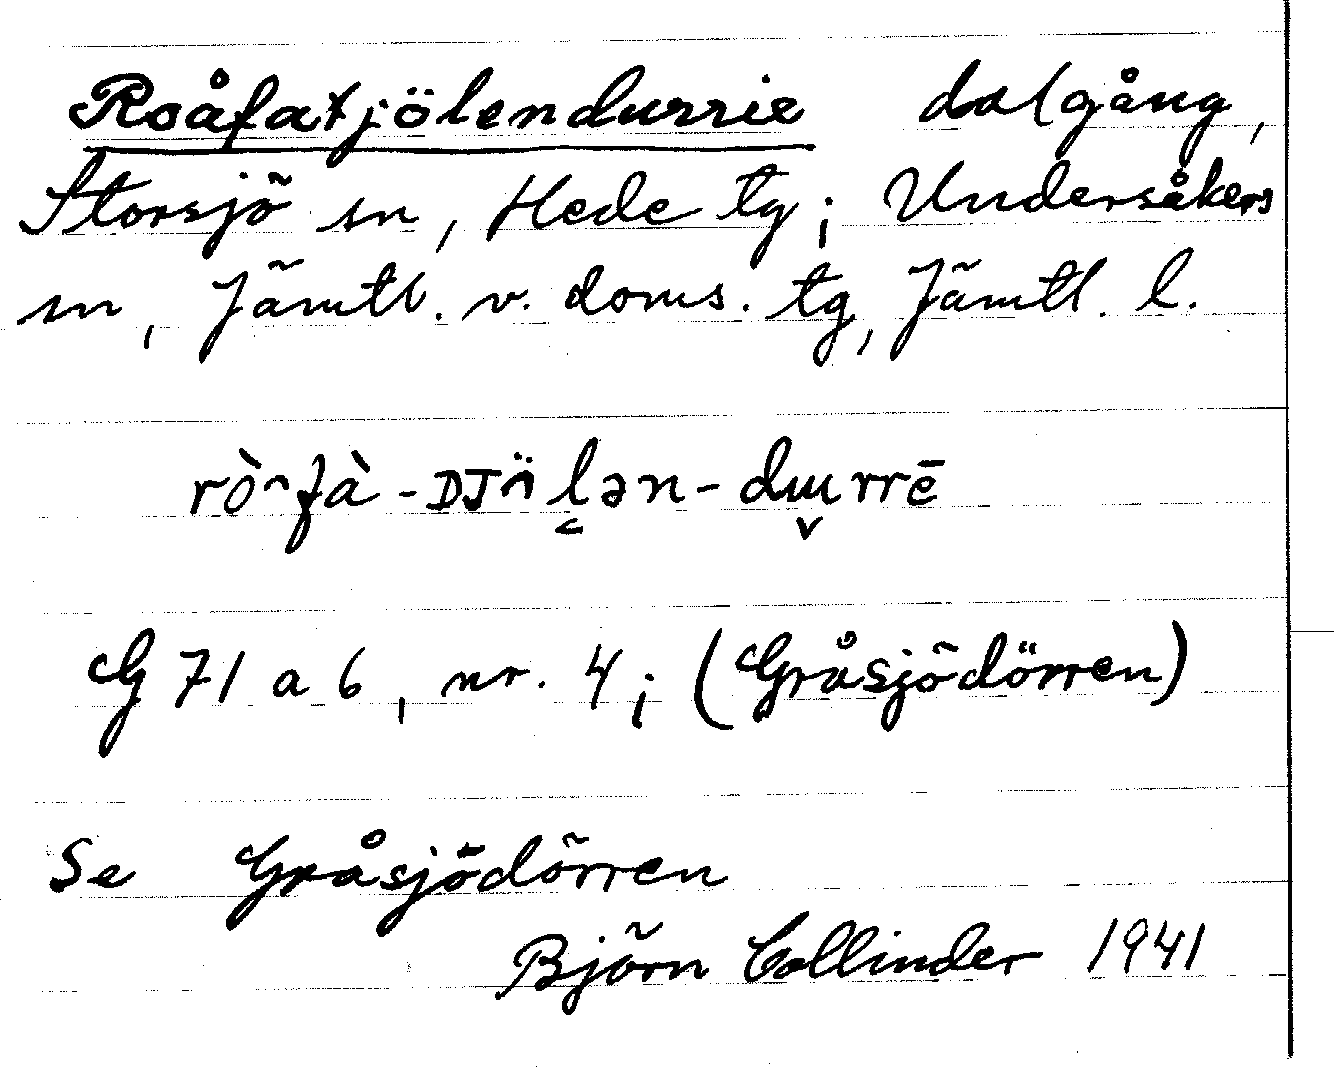 Roåfatjölendurrie dalgång,
Storsjö sn, Hede tg; Undersåkers
sn, Jämtl. v. doms. tg, Jämtl. l.
G 71 a 6, nr. 4; (Gråsjödörren)
Se Gråsjödörren
Björn Collinder 1941